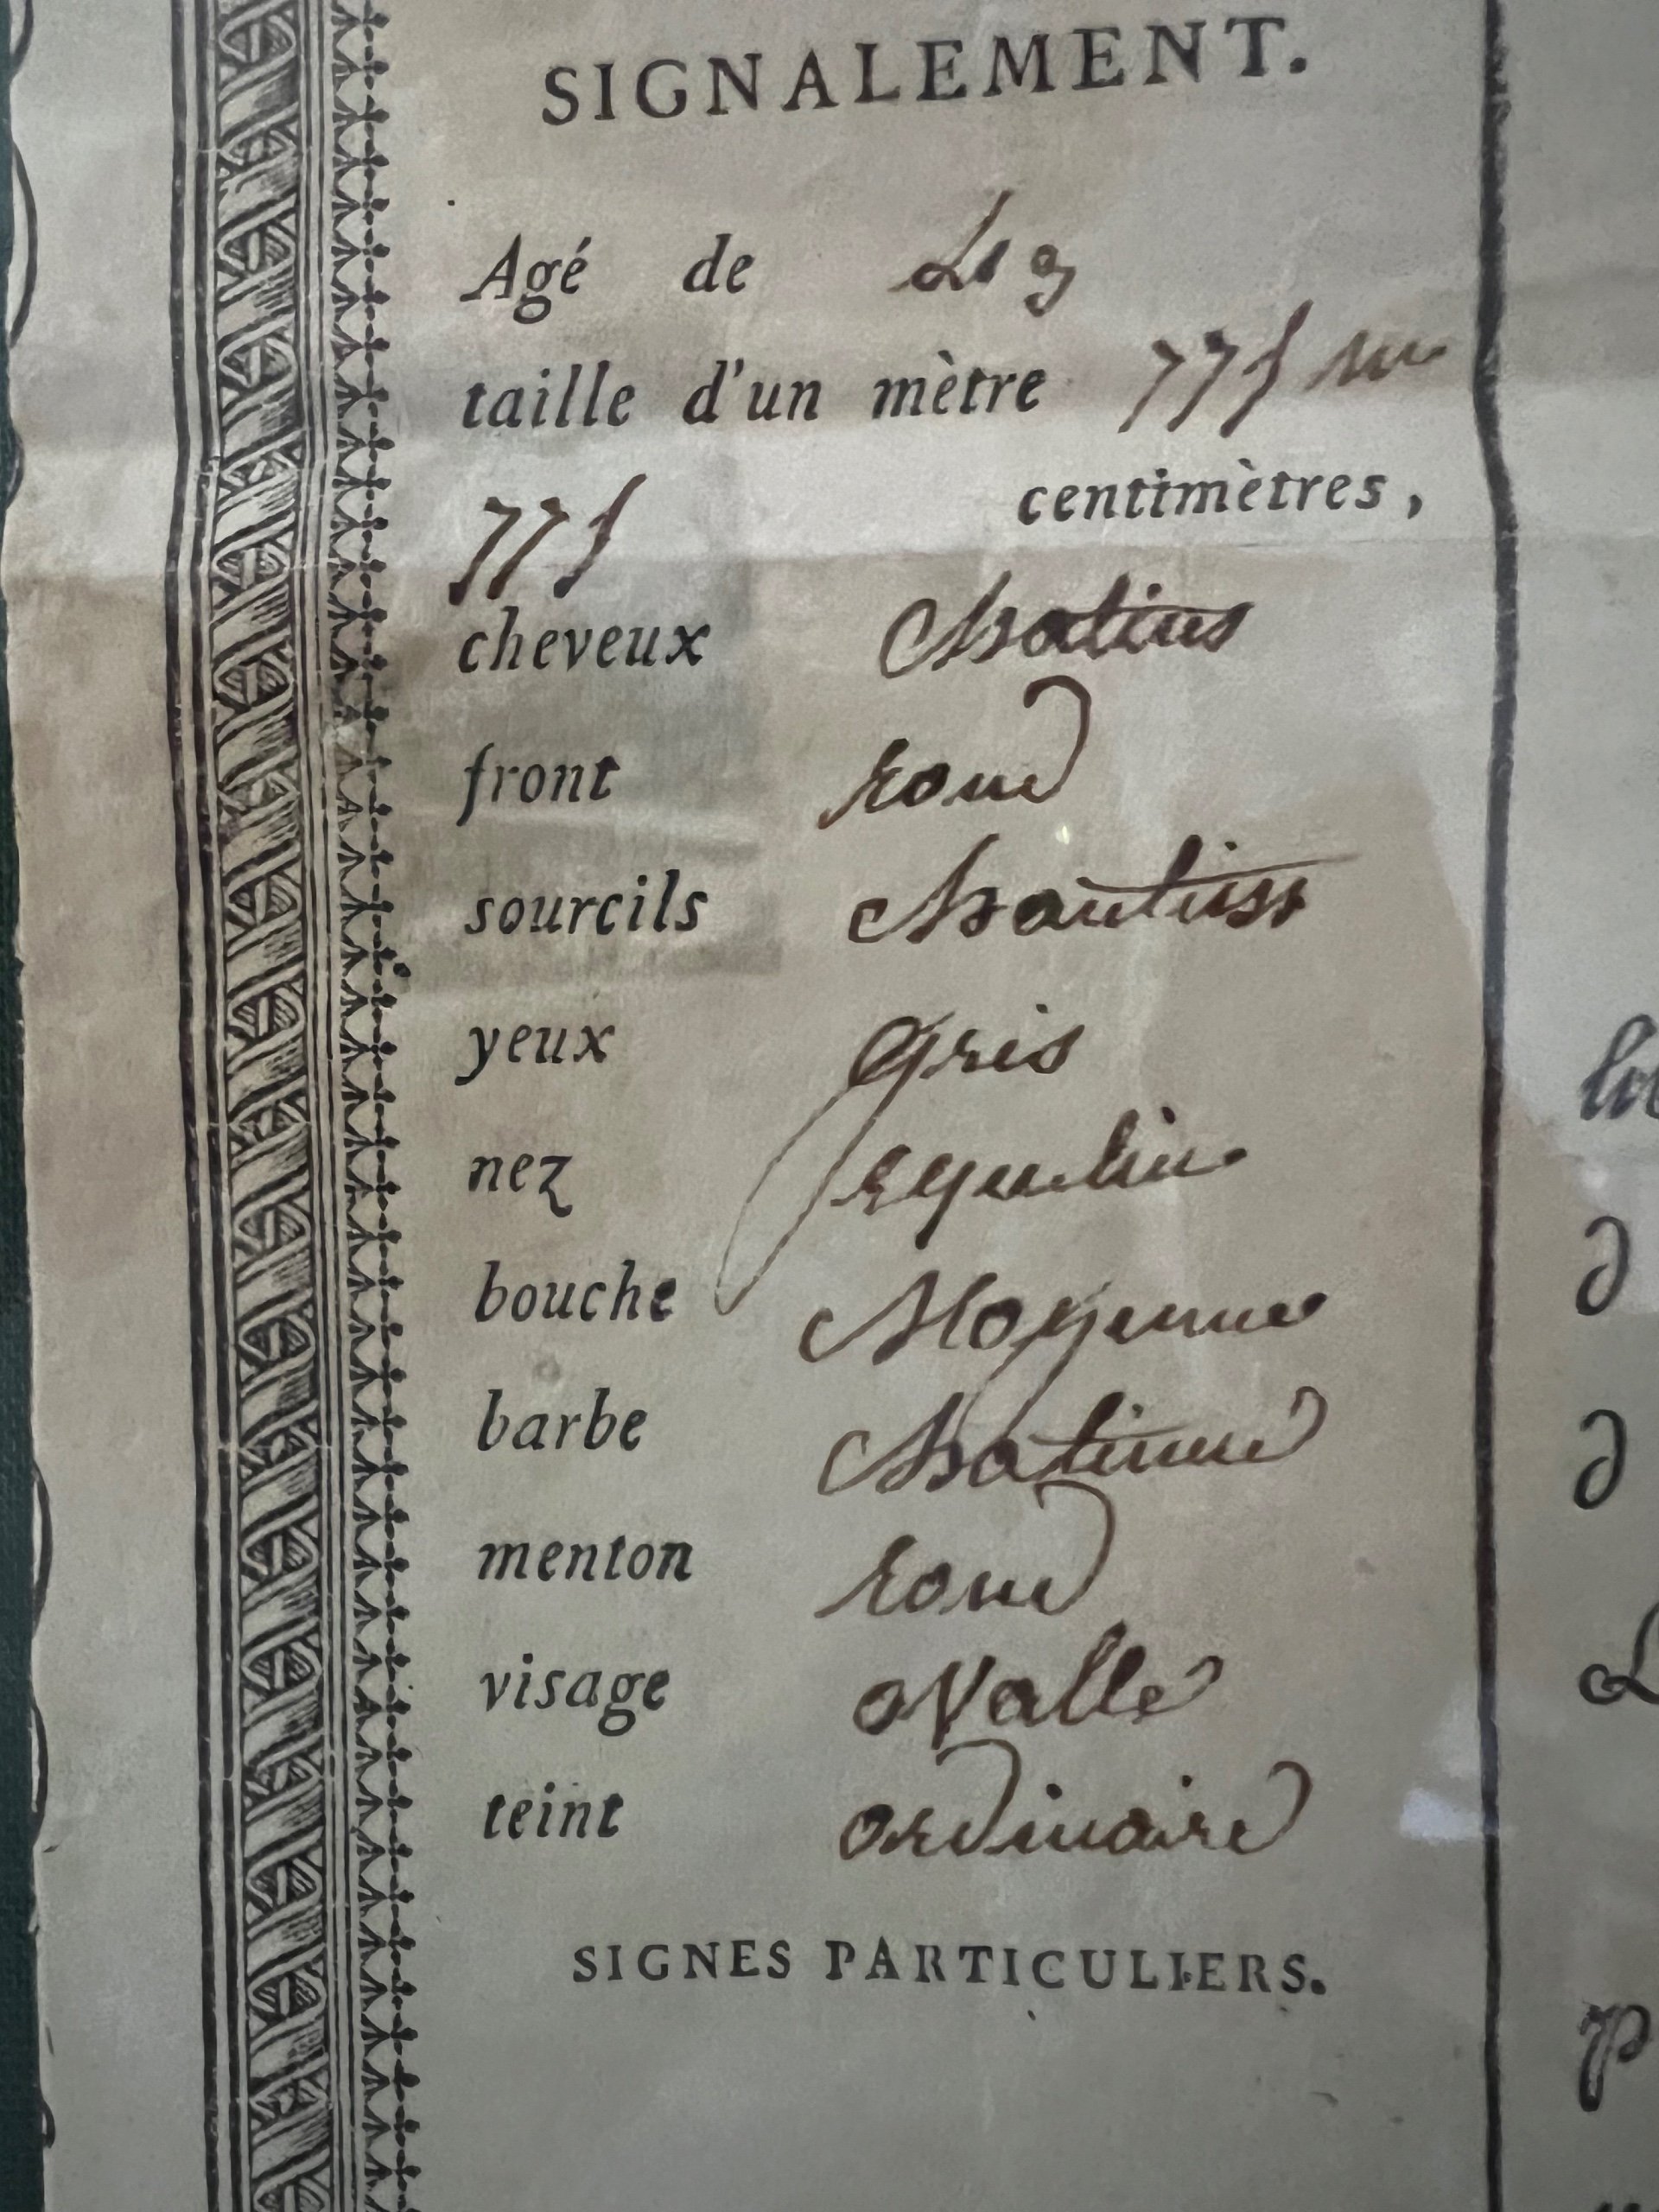 SIGNALEMENT.
Agé de
taille d'un mètre 775 m
centimètres,
775
cheveux Chatins
front rond
sourcils
yeux Gris
nez
bouche Moyenne
barbe Chatinne
menton rond
visage oValle
teint ordinaire
SIGNES PARTICULIERS.